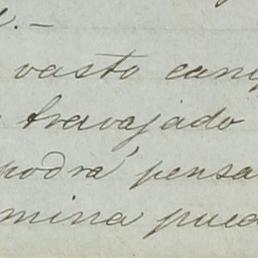 vasto
travajado
podrá pensa
mina pued